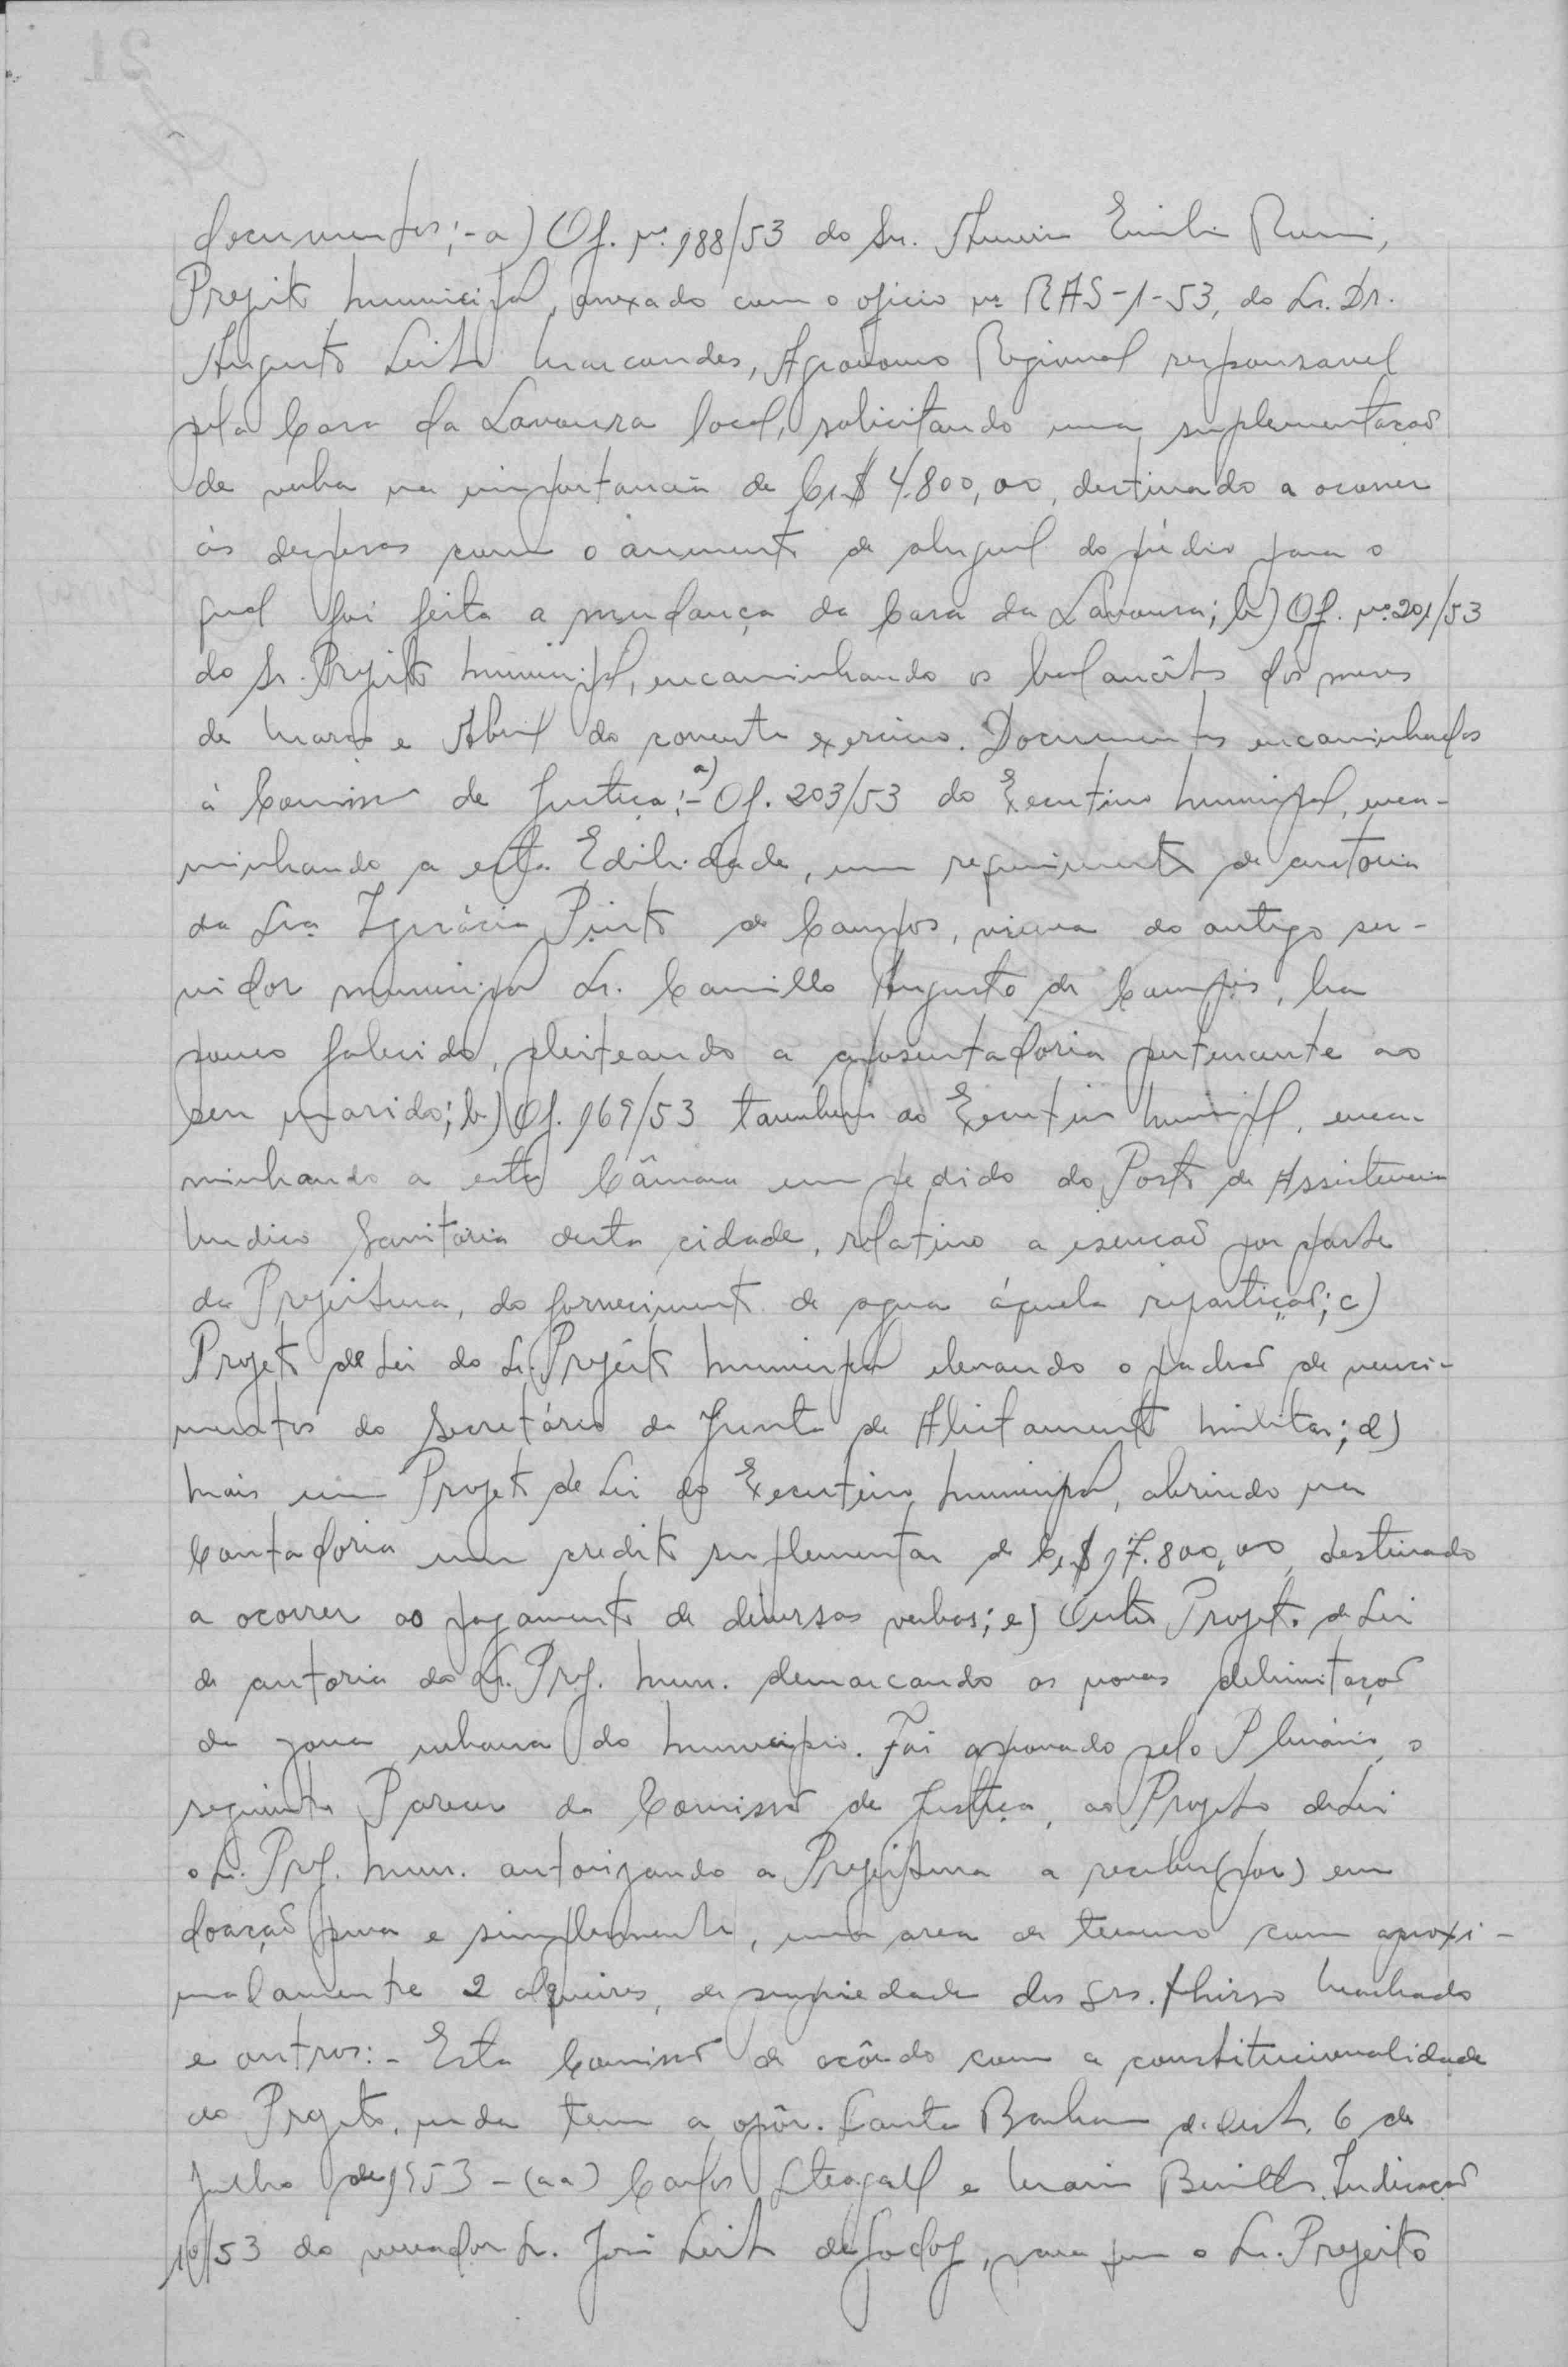 documentos;- a) Of. nº 188/53 do Sr. Emilio
Prefeito Municipal, anexado com o oficio nº RAS-1-53, do Sr. Dr.
Augusto Leite Marcondes, Agronomo Regional responsavel
pela Casa da Lavoura local, solicitando uma suplementação
de verba na importancia de Cr$ 4.800,00, destinado a ocorrer
ás despesas com o aumento de aluguel do prédio para o
qual foi feita a mudança da Casa da Lavoura; b) Of. nº 201/53
do Sr. Prefeito Municipal, encaminhando os balancêtes dos meses
de Março e Abril do corrente exercicio. Documentos encaminhados
á Comissão de Justiça:- a) Of. 203/53 do Executivo Municipal, enca-
minhando a esta Edilidade, um requerimento de autoria
da Sra. Ignácia Pinto de Campos, viuva do antigo ser-
vidor municipal Sr. Camillo Augusto de Campos, ha
pouco falecido, pleiteando a aposentadoria pertencente ao
seu marido; b) Of. 169/53 tambem do Executivo Municipal, enca-
minhando a esta Câmara um pedido do Posto de Assistencia
Medico Sanitária desta cidade, relativo a isenção por parte
da Prefeitura, do fornecimento de agua áquela repartição; c)
Projeto de Lei do Sr. Prefeito Municipal elevando o padrão de venci-
mentos do Secretário da Junta de Alistamento Militar; d)
Mais um Projeto de Lei do Executivo Municipal, abrindo na
Contadoria um credito suplementar de Cr$ 17.800,00, destinado
a ocorrer ao pagamento de diversas verbas; e) Outro Projeto de Lei
de autoria do Sr. Pref. Mun. demarcando as novas delimitação
da zona urbana do Municipio. Foi aprovado pelo Plenário, o
seguinte Parecer da Comissão de Justiça, ao Projeto de Lei
o Sr. Pref. Mun. autorizando a Prefeitura a receber (por) em
doação pura e simplesmente, uma area de terreno com aproxi-
madamente 2 alqueires, de propriedade dos Srs. Thirso Machado
e outros:- Esta Comissão de acôrdo com a constitucionalidade
do Projeto, nada tem a opôr. Santa Barbara d'Oeste, 6 de
Julho de 1953 - (aa) Carlos Steagall e Mario Benitte. Indicação
10/53 do vereador Sr. José Leite de Godoy, para que o Sr. Prefeito